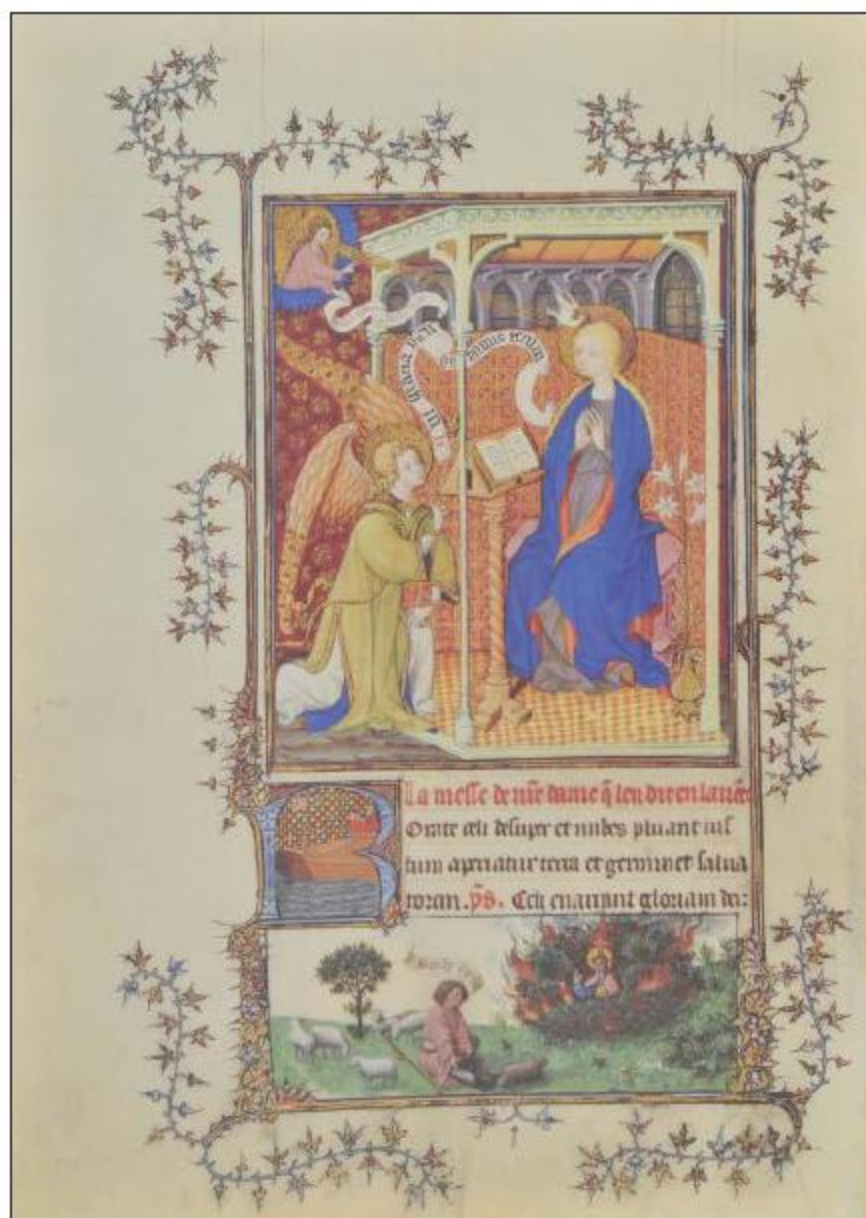 dominus tecum
La messe de nre dame q len dit en
Rorate celi desuper et nubes pluant ius
tum aperiatur terra et germinet salua
torem. ps. Celi enarrant gloriam dei: